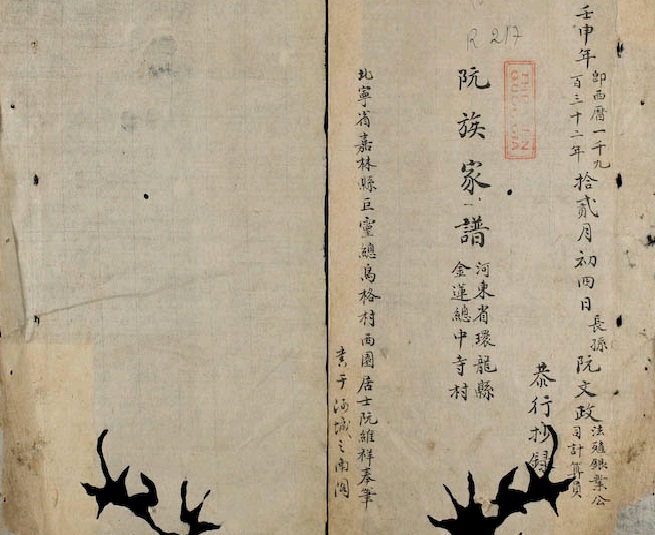 R 217
壬申年
卽西曆一千九
百三十二年
拾貳月初四日
長孫
阮文政
法殖銀業公
司計算員
恭行抄錄
阮族家譜
河東省環龍縣
金蓮總中寺村
北寧省嘉林縣巨靈總烏格村西園居士阮維祥奉筆
書于河城之南